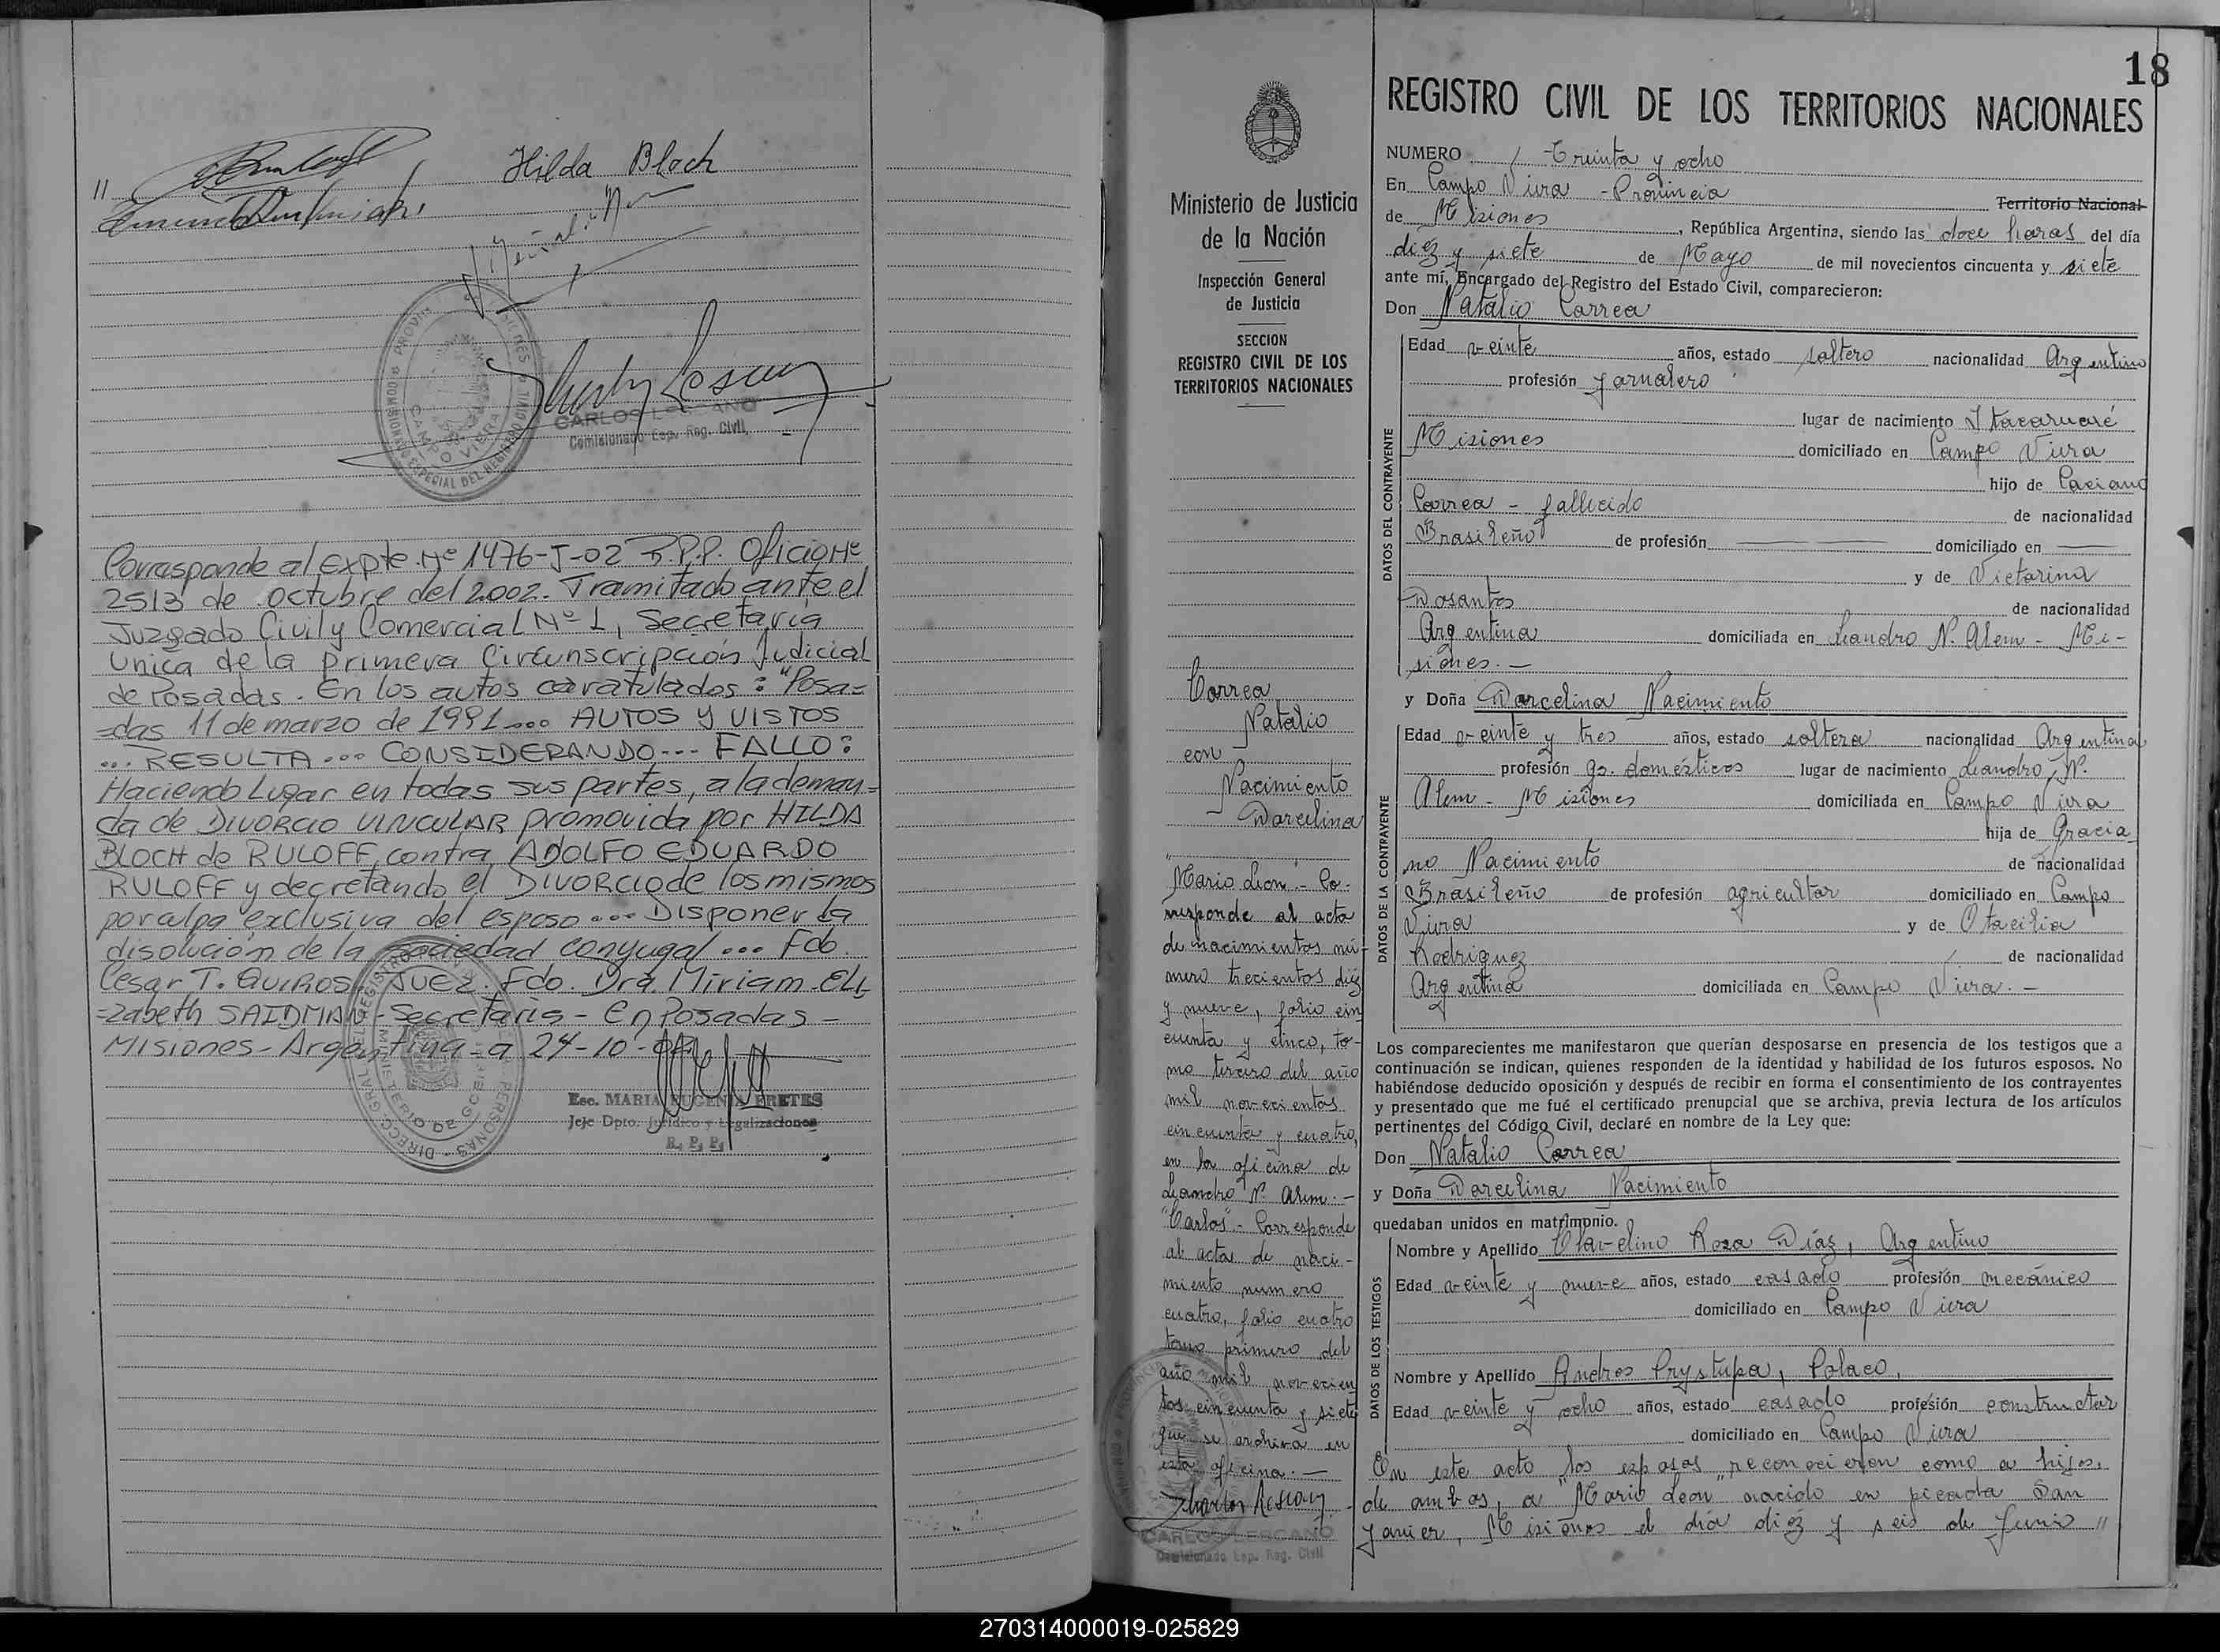 Hilda Bloch
//
CARLOS LESCANO
Comisionado Esp. Reg. Civil
CAMPO VIERA
Corresponde al Expte. Nº 1476-J-02 R.P.P. Oficio Nº
2513 de octubre del 2002. Tramitado ante el
Juzgado Civil y Comercial Nº 1, Secretaría
Unica de la Primera Circunscripción Judicial
de Posadas. En los autos caratulados: "Posa=
=das 11 de marzo de 1991.... AUTOS Y VISTOS
... RESULTA ... CONSIDERANDO... FALLO:
Haciendo Lugar en todas sus partes, a la deman=
da de DIVORCIO VINCULAR promovida por HILDA
BLOCH de RULOFF, contra ADOLFO EDUARDO
RULOFF y decretando el DIVORCIO de los mismos
por culpa exclusiva del esposo ... Disponer la
disolución de la sociedad conyugal ... Fdo.
Cesar T. QUIROS - JUEZ. Fdo. Dra. Miriam ELI
=zabeth SAIDMAN - Secretaria - En Posadas -
Misiones - Argentina - a 24-10-02
Esc. MARIA EUGENIA BRETES
Jefe Dpto. Jurídico y Legalizaciones
R. P. P.
18
Ministerio de Justicia
de la Nación
Inspección General
de Justicia
SECCION
REGISTRO CIVIL DE LOS
TERRITORIOS NACIONALES
Correa
Natalio
con
Nacimiento
Darcelina
"Mario Leon" - Co-
rresponde al acta
de nacimientos nú-
mero trecientos diéz
y nueve, folio cin
cuenta y cinco, to-
mo tercero del año
mil novecientos
cincuenta y cuatro,
en la oficina de
Leandro N. Alem. -
"Carlos" - Corresponde
al acta de naci-
miento numero
cuatro, folio cuatro
tomo primero del
año mil novecien
tos cincuenta y siete
que se archiva en
esta oficina. -
CARLOS LESCANO
Comisionado Esp. Reg. Civil
REGISTRO CIVIL DE LOS TERRITORIOS NACIONALES
NUMERO Treinta y ocho
En Campo Viera - Provincia Territorio Nacional
de Misiones, República Argentina, siendo las doce horas del día
diéz y siete de Mayo de mil novecientos cincuenta y siete
ante mí, Encargado del Registro del Estado Civil, comparecieron:
Don Natalio Correa
DATOS DEL CONTRAYENTE
Edad veinte años, estado soltero nacionalidad Argentino
profesión jornalero
lugar de nacimiento Itacaruaré
Misiones domiciliado en Campo Viera
hijo de Paciano
Correa - fallecido de nacionalidad
Brasileño de profesión domiciliado en
y de Victorina
Dosantos de nacionalidad
Argentina domiciliada en Leandro N. Alem - Mi-
siones. -
y Doña Darcelina Nacimiento
DATOS DE LA CONTRAYENTE
Edad veinte y tres años, estado soltera nacionalidad Argentina
profesión qs. domésticos lugar de nacimiento Leandro N.
Alem - Misiones domiciliada en Campo Viera
hija de Gracia
no Nacimiento de nacionalidad
Brasileño de profesión agricultor domiciliado en Campo
Viera y de Otacilia
Rodriguez de nacionalidad
Argentina domiciliada en Campo Viera. -
Los comparecientes me manifestaron que querían desposarse en presencia de los testigos que a
continuación se indican, quienes responden de la identidad y habilidad de los futuros esposos. No
habiéndose deducido oposición y después de recibir en forma el consentimiento de los contrayentes
y presentado que me fué el certificado prenupcial que se archiva, previa lectura de los artículos
pertinentes del Código Civil, declaré en nombre de la Ley que:
Don Natalio Correa
y Doña Darcelina Nacimiento
quedaban unidos en matrimonio.
DATOS DE LOS TESTIGOS
Nombre y Apellido Clavelino Rosa Diaz, Argentino
Edad veinte y nueve años, estado casado profesión mecánico
domiciliado en Campo Viera
Nombre y Apellido Andres Prystupa, Polaco,
Edad veinte y ocho años, estado casado profesión constructor
domiciliado en Campo Viera
En este acto los esposos reconocieron como a hijos
de ambos, a "Mario Leon nacido en picada San
Javier, Misiones el día diéz y seis de Junio //
270314000019-025829